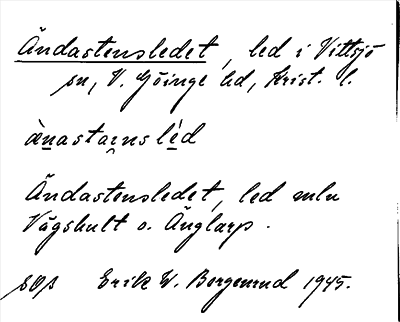 Ändastensledet, led i Vittsjö
sn, V. Göinge hd, Krist. l.
ànastaɛnsléd
Ändastensledet, led mln
Vägshult o. Änglarp.
sOs Erik W. Bergemnd 1945.